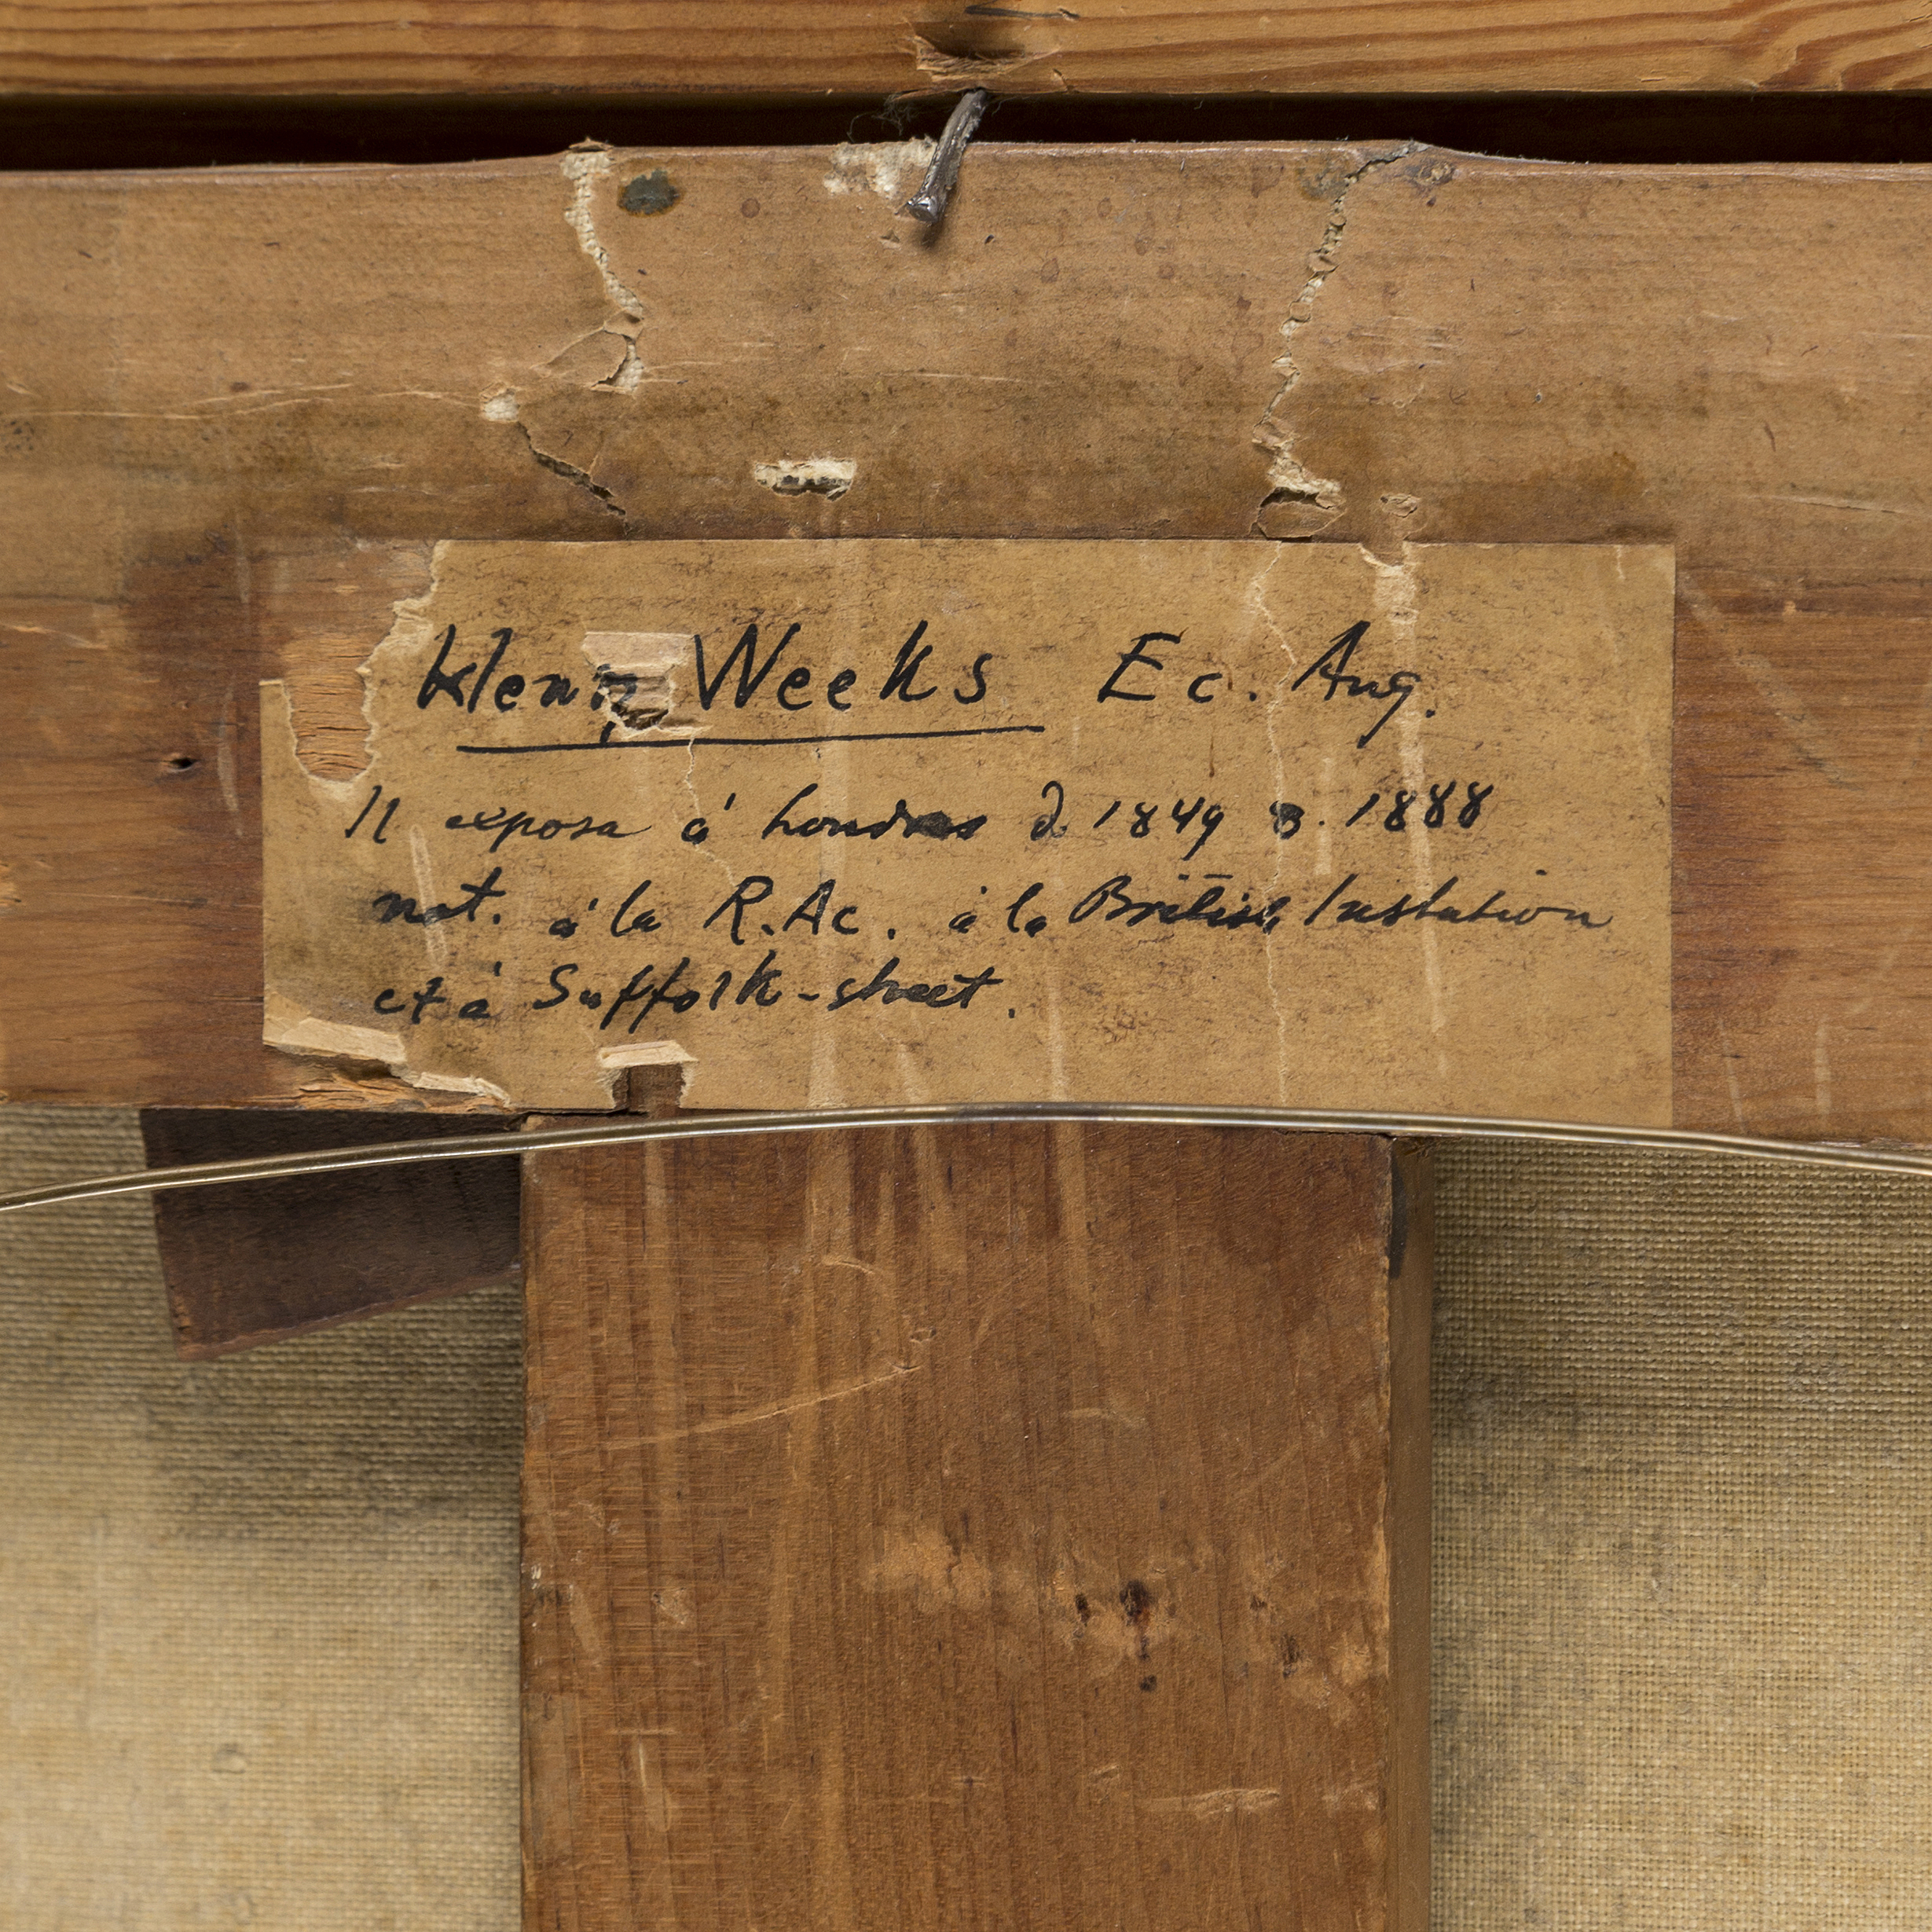 Henry Weeks Ec. Ang.
Il exposa à Londres d 1849 à 1888
not. à la R.Ac. à la British Instution
et à Suffolk-street.